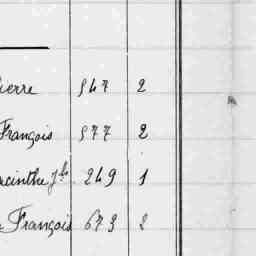 ierre 547 2
François 577 2
acinthe fils 249 1
François 673 2